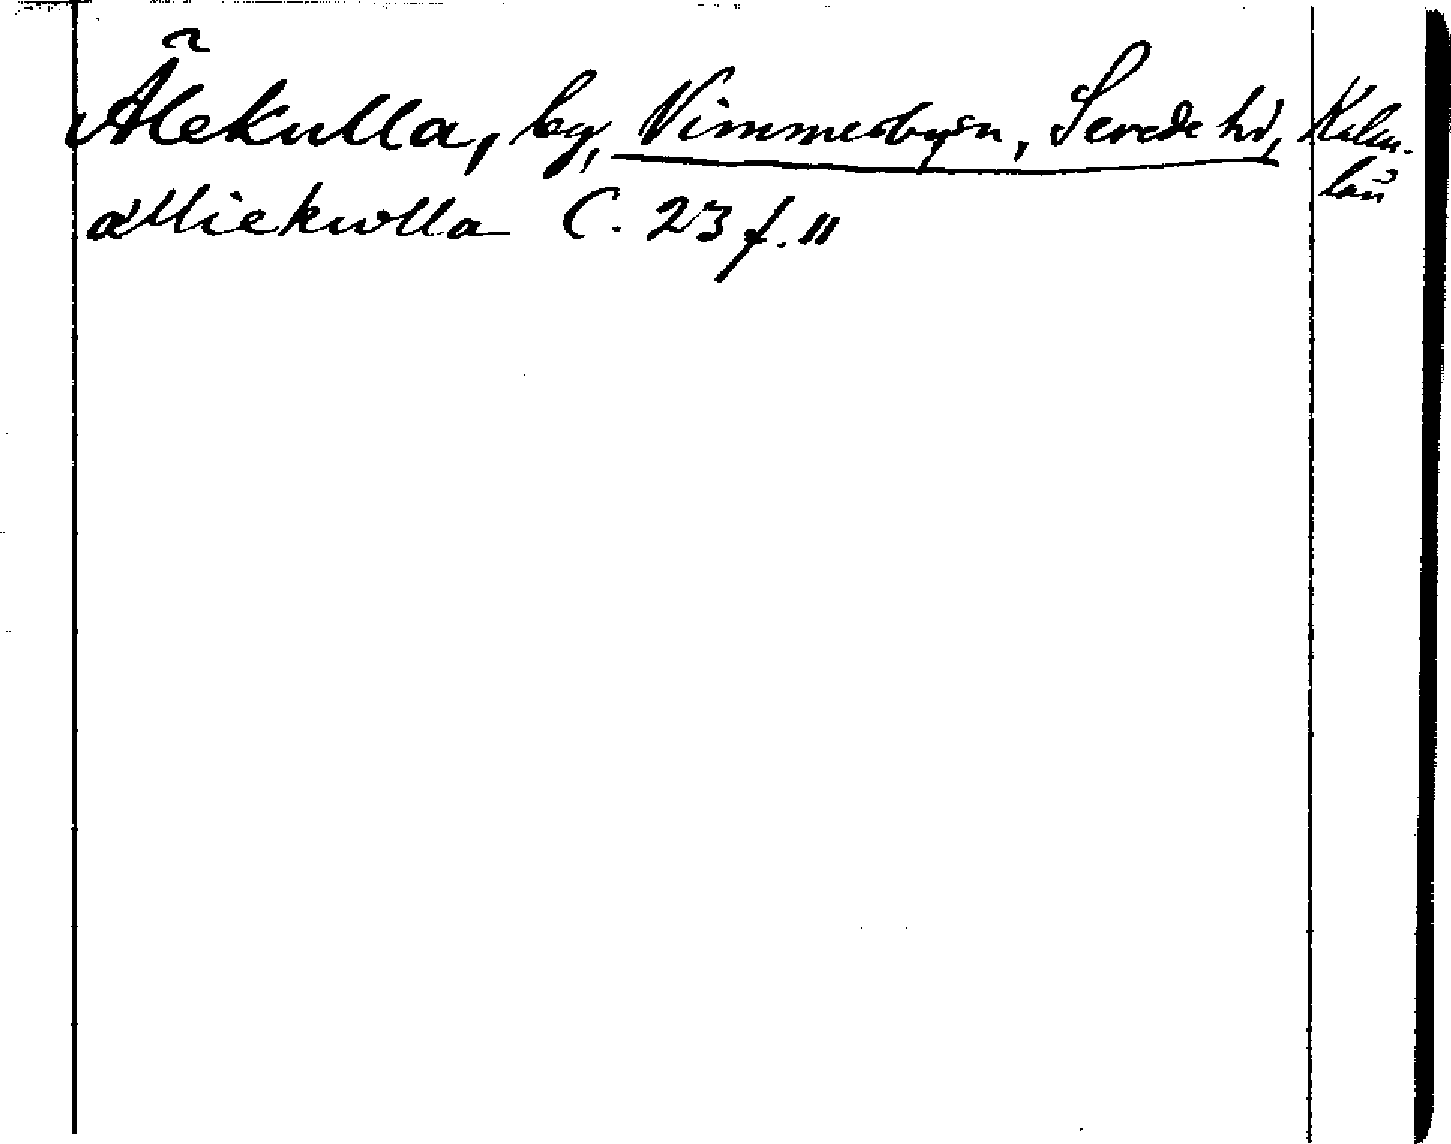 Älekulla, by, Vimmerby sn, Sevede hd, Kalm.
län
alliekwlla C. 23 f. 11